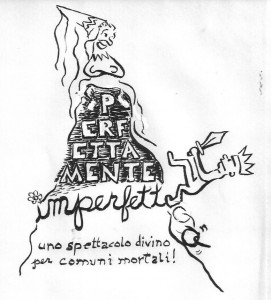 P
ERF
ETTA
MENTE
imperfetto
uno spettacolo divino
per comuni mortali!